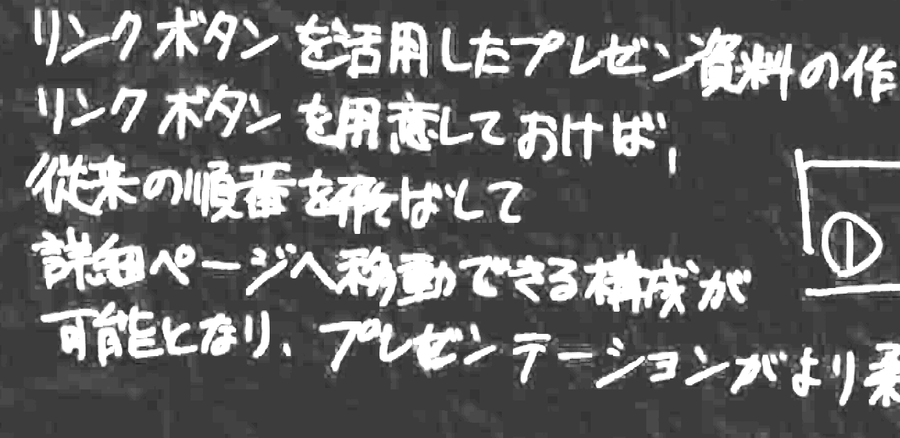 リンクボタンを活用したプレゼン資料の作
リンクボタンを用意しておけば,
従来の順番を飛ばして
詳細ページへ移動できる構成が
可能となり、プレゼンテーションがより柔
①